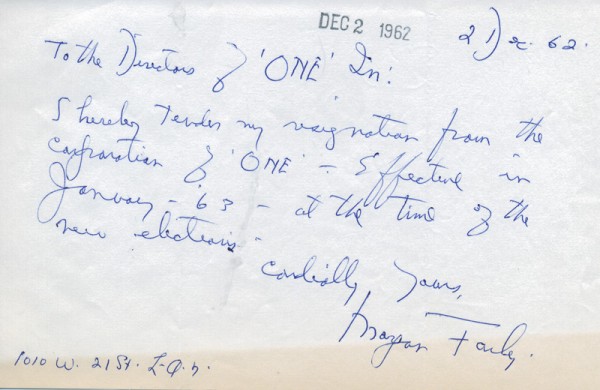 DEC 2 1962
2 Dec. 62.
To the Directors of 'ONE' In:
I hereby Tender my resignation from the
Corporation of 'ONE' - Effective in
January - '63 - at the time of the
new elections -
Cordially Yours,
Morgan Farley.
1010 W. 21 St. L.A. 7.